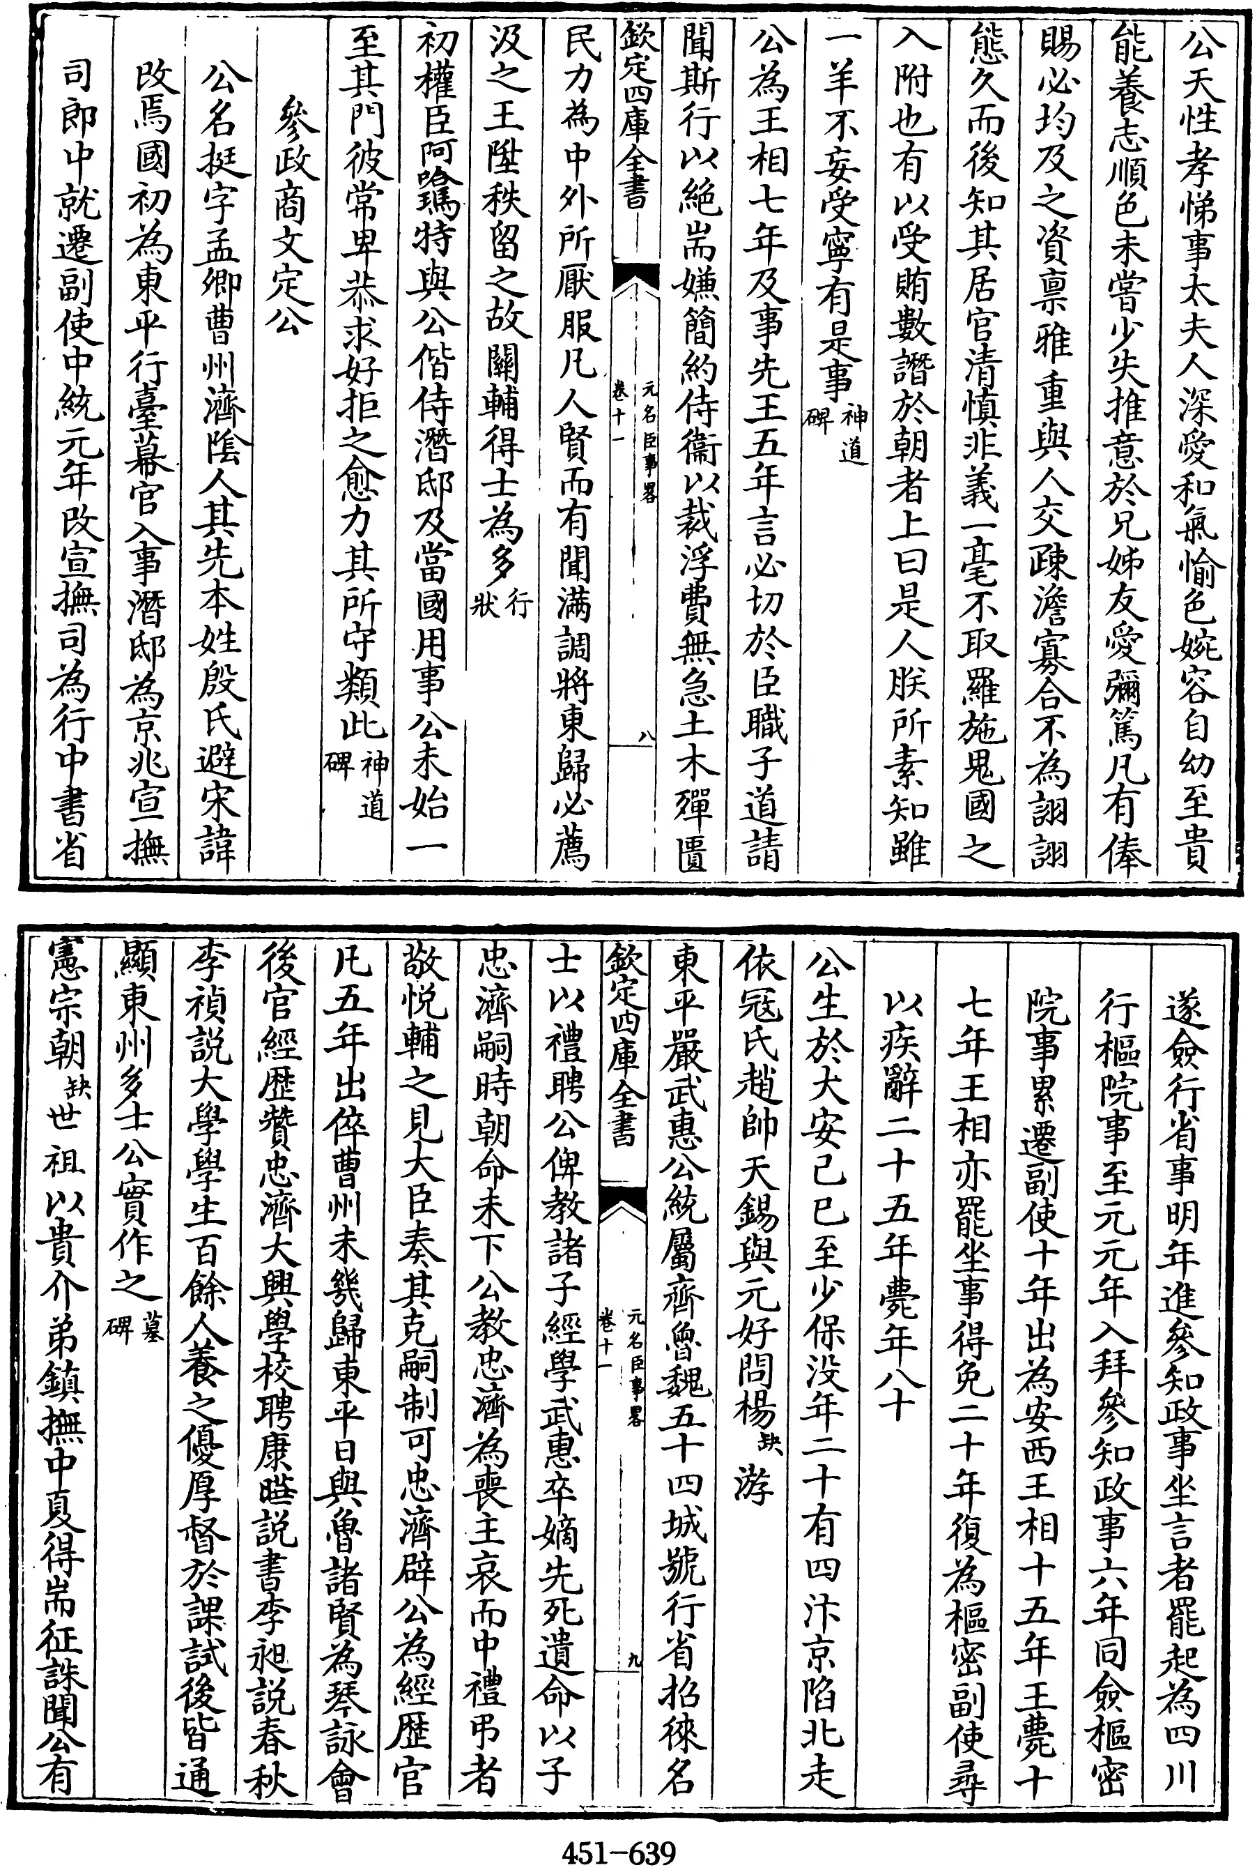 公天性孝悌事太夫人深愛和氣愉色婉容自幼至貴
能養志順色未嘗少失推意於兄姊友愛彌篤凡有俸
賜必均及之資禀雅重與人交疎澹寡合不為詡詡
態久而後知其居官清慎非義一毫不取羅施鬼國之
入附也有以受賄數譖於朝者上曰是人朕所素知雖
一羊不妄受寧有是事神道碑
公為王相七年及事先王五年言必切於臣職子道請
聞斯行以絶耑嫌簡約侍衞以裁浮費無急土木殫匱
欽定四庫全書
元名臣事畧
卷十一
八
民力為中外所厭服凡人賢而有聞滿調將東歸必薦
汲之王陞秩留之故關輔得士為多行狀
初權臣阿哈瑪特與公偕侍潛邸及當國用事公未始一
至其門彼常卑恭求好拒之愈力其所守類此神道碑
參政商文定公
公名挺字孟卿曹州濟陰人其先本姓殷氏避宋諱
改焉國初為東平行臺幕官入事潛邸為京兆宣撫
司郎中就遷副使中統元年改宣撫司為行中書省
遂僉行省事明年進參知政事坐言者罷起為四川
行樞院事至元元年入拜參知政事六年同僉樞密
院事累遷副使十年出為安西王相十五年王薨十
七年王相亦罷坐事得免二十年復為樞密副使尋
以疾辭二十五年薨年八十
公生於大安己巳至少保没年二十有四汴京陷北走
依冠氏趙帥天錫與元好問楊缺游
東平嚴武惠公統屬齊魯魏五十四城號行省招徠名
欽定四庫全書
元名臣事畧
卷十一
九
士以禮聘公俾教諸子經學武惠卒嫡先死遺命以子
忠濟嗣時朝命未下公教忠濟為喪主哀而中禮弔者
敬悦輔之見大臣奏其克嗣制可忠濟辟公為經歴官
凡五年出倅曹州未幾歸東平日與魯諸賢為琴詠會
後官經歴贊忠濟大興學校聘康曄說書李昶說春秋
李禎説大學學生百餘人養之優厚督於課試後皆通
顯東州多士公實作之墓碑
憲宗朝缺世祖以貴介弟鎮撫中夏得耑征誅聞公有
451-639